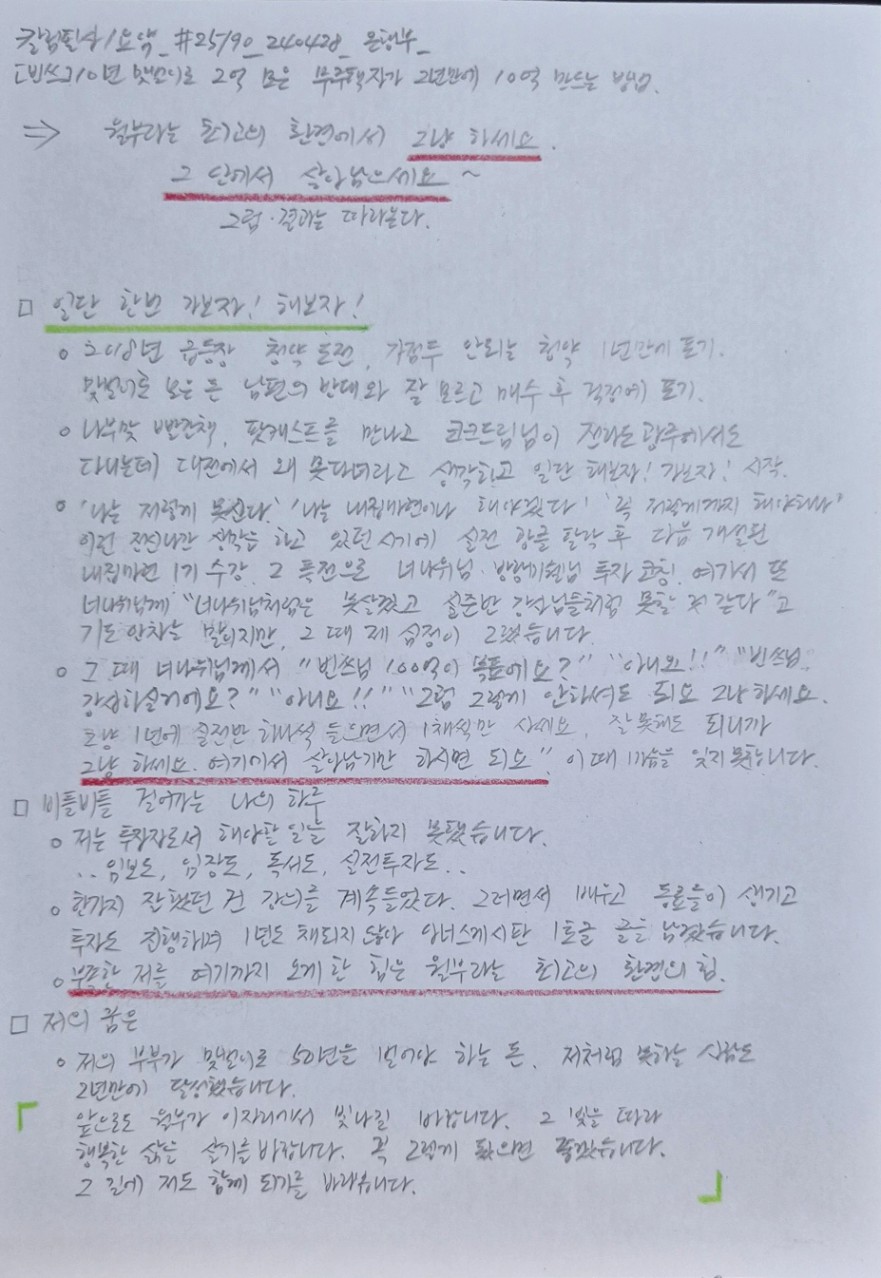 칼럼필사/요약_#25/90_240428_은행부_
[빈쓰] 10년 맞벌이로 2억 모은 무주택자가 2년만에 10억 만드는 방법.
⇒ 월부라는 최고의 환경에서 그냥 하세요.
그 안에서 살아남으세요~
그럼 결과는 따라온다.
□ 일단 한번 가보자! 해보자!
o 2018년 급등장 청약 도전, 가점두 안되는 청약 1년만에 포기.
맞벌이로 모은 돈 남편의 반대와 잘 모르고 매수 후 걱정에 포기.
o 너부맞 빨간책, 팟캐스트를 만나고 코크드림님이 전라도 광주에서도
다니는데 대전에서 왜 못다녀라고 생각하고 일단 해보자! 가보자! 시작.
o '나는 저렇게 못산다.' '나는 내집마련이나 해야겠다!' '꼭 저렇게까지 해야해나'
이런 생각을 하고 있던 시기에 실전 광클 탈락 후 다음 개설된
내집마련 1기 수강. 그 특전으로 너나위님·방랑미쉘님 투자 코칭! 여기서 또
너나위님께 "너나위님처럼은 못살겠고 실준반 강사님들처럼 못할 것 같다"고
기도 안차는 말이지만, 그 때 제 심정이 그랬습니다.
o 그 때 너나위님께서 "빈쓰님 100억이 목표에요?" "아니요!!" "빈쓰님.
강사하실거에요?" "아니요!!" "그럼 그렇게 안하셔도 되요 그냥 하세요.
그냥 1년에 실전반 하나씩 들으면서 1채씩만 사세요. 잘 못해도 되니까
그냥 하세요. 여기에서 살아남기만 하시면 되요" 이 때 가슴을 잊지 못합니다.
□ 비틀비틀 걸어가는 나의 하루
o 저는 투자자로서 해야할 일을 잘하지 못했습니다.
..임보도, 임장도, 독서도, 실전투자도..
o 한가지 잘했던 건 강의를 계속들었다. 그러면서 배우고 동료들이 생기고
투자도 진행하며 1년도 채되지 않아 입너스게시판 1호글 글을 남겼습니다.
o 부족한 저를 여기까지 오게 한 힘은 월부라는 최고의 환경의 힘.
□ 저의 꿈은
o 저의 부부가 맞벌이로 50년을 벌어야 하는 돈. 저처럼 못하는 사람도
2년만에 달성했습니다.
앞으로도 월부가 이자리에서 빛나길 바랍니다. 그 빛을 따라
행복한 삶을 살기를 바랍니다. 꼭 그렇게 됐으면 좋겠습니다.
그 길에 저도 함께 되기를 바라봅니다.